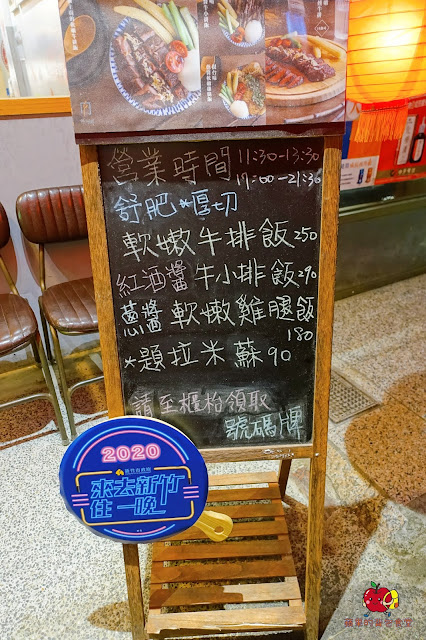 營業時間 11:30-13:30
17:00-21:30
舒肥*厚切
軟嫩牛排飯250
紅酒醬牛小排飯290
蔥醬軟嫩雞腿飯
180
*題拉米蘇90
請至櫃枱領取
號碼牌
2020
來去新竹
住一晚